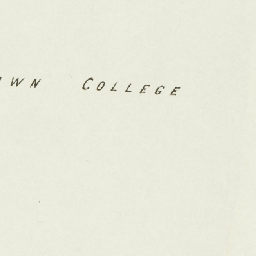 WN COLLEGE